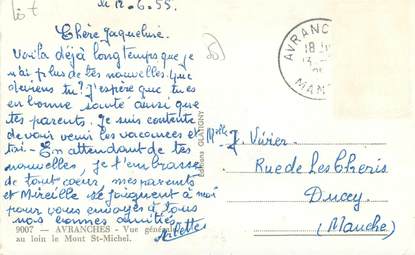 le 12.6.55.
Chère Jacqueline.
Voilà déjà longtemps que je
n'ai plus de tes nouvelles. Que
deviens tu? J'espère que tu es
en bonne santé ainsi que
tes parents. Je suis contente
de voir venir les vacances et
toi - En attendant de tes
nouvelles, je t'embrasse
de tout coeur, mes parents
et Mireille se joignent à moi
pour vous envoyer à tous
nos bonnes amitiés.
Arlette
9007 - AVRANCHES - Vue générale
au loin le Mont St-Michel.
Editions GLATIGNY
AVRANCHES
18
13
MAN
Mlle J. Vivier
Rue de Les Cheris
Ducey
(Manche)